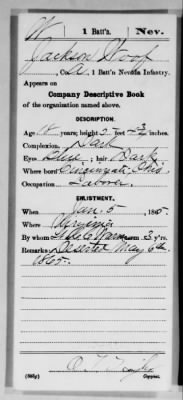 W | 1 Batt's. | Nev.
Jackson Woof
Co. A, 1 Batt'n Nevada Infantry.
Appears on
Company Descriptive Book
of the organization named above.
DESCRIPTION.
Age years; height 5 feet inches.
Complexion Dark
Eyes Blue; hair Dark
Where born Cincinnati Ohio
Occupation Laborer
ENLISTMENT.
When Jan. 5, 1865.
Where Virginia
By whom term 3 y'rs.
Remarks: Deserted May 6th
1865.
Copyist.